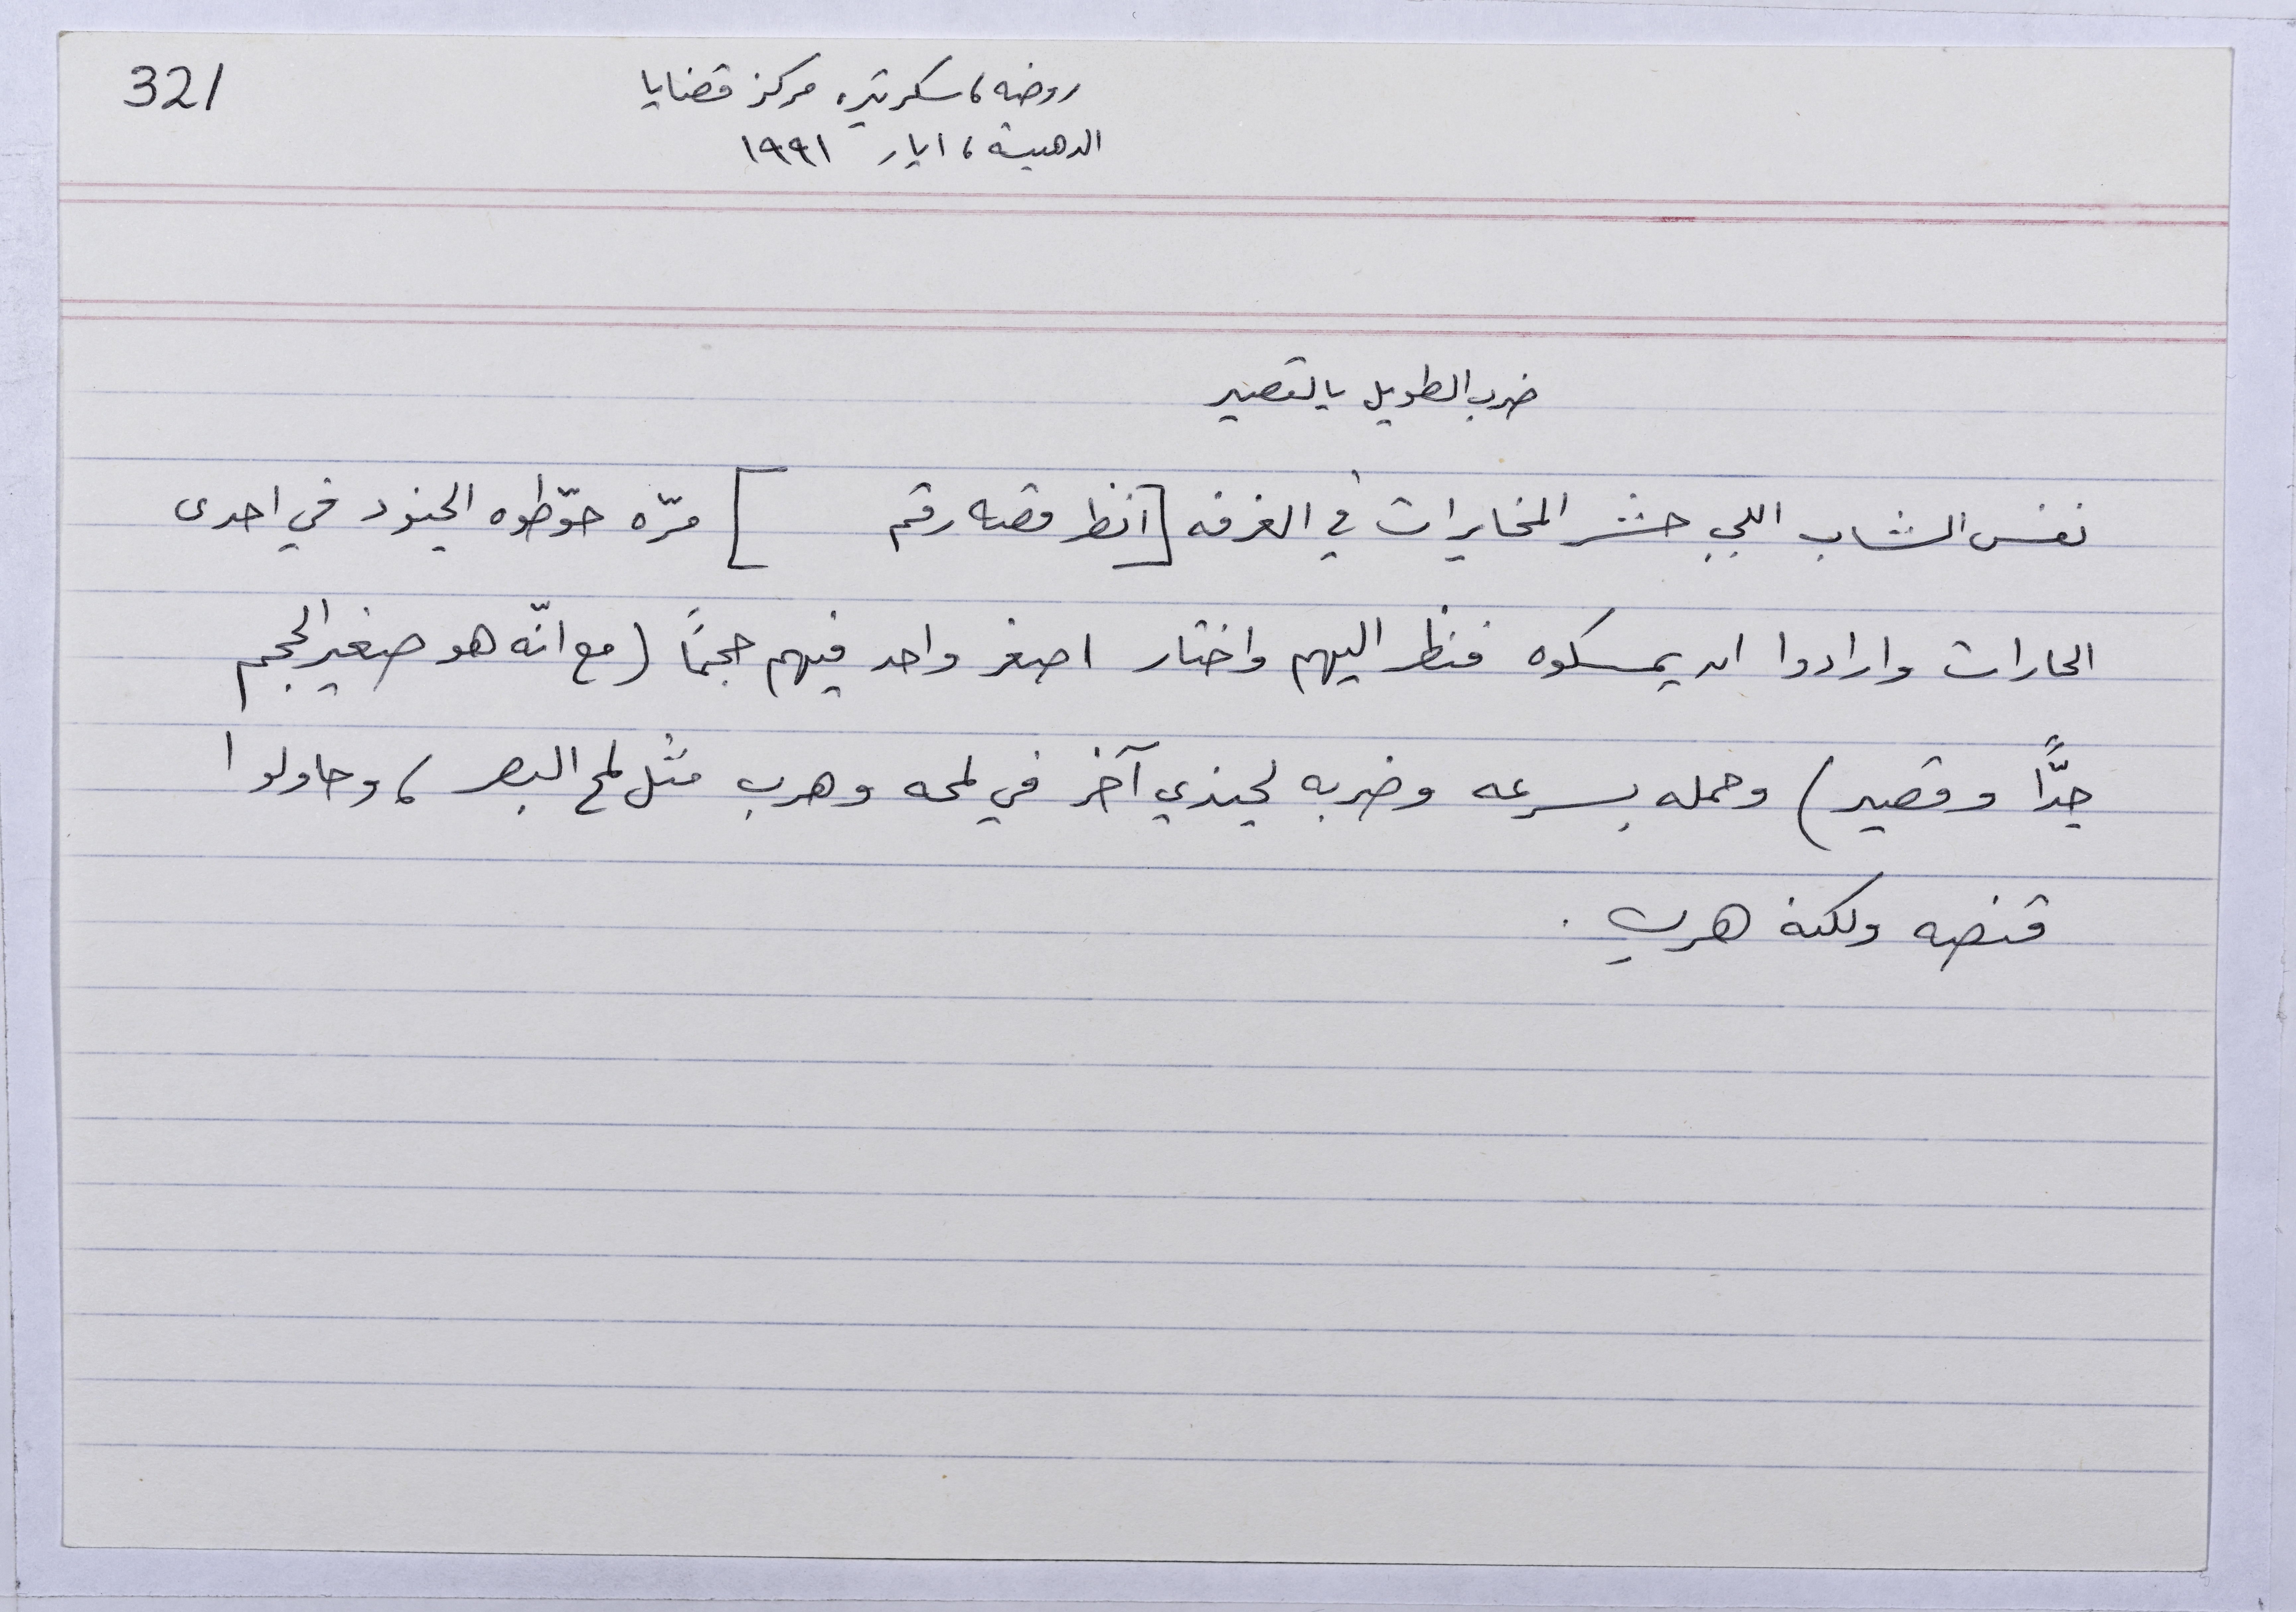 321
روضه، سكرتيره مركز قضايا
الدهيشة، ايار ١٩٩١
ضرب الطويل بالقصير
نفس الشاب اللي حشر المخابرات في الغرفه [انظر قصه رقم ] مرّه حوّطوه الجنود في احدى
الحارات وارادوا ان يمسكوه فنظر اليهم واختار اصغر واحد فيهم حجماً (مع انّه هو صغير الحجم
جدّاً وقصير) وحمله بسرعه وضربه لجندي آخر في لمحه وهرب مثل لمح البصر، وحاولوا
قنصه ولكنه هرب.